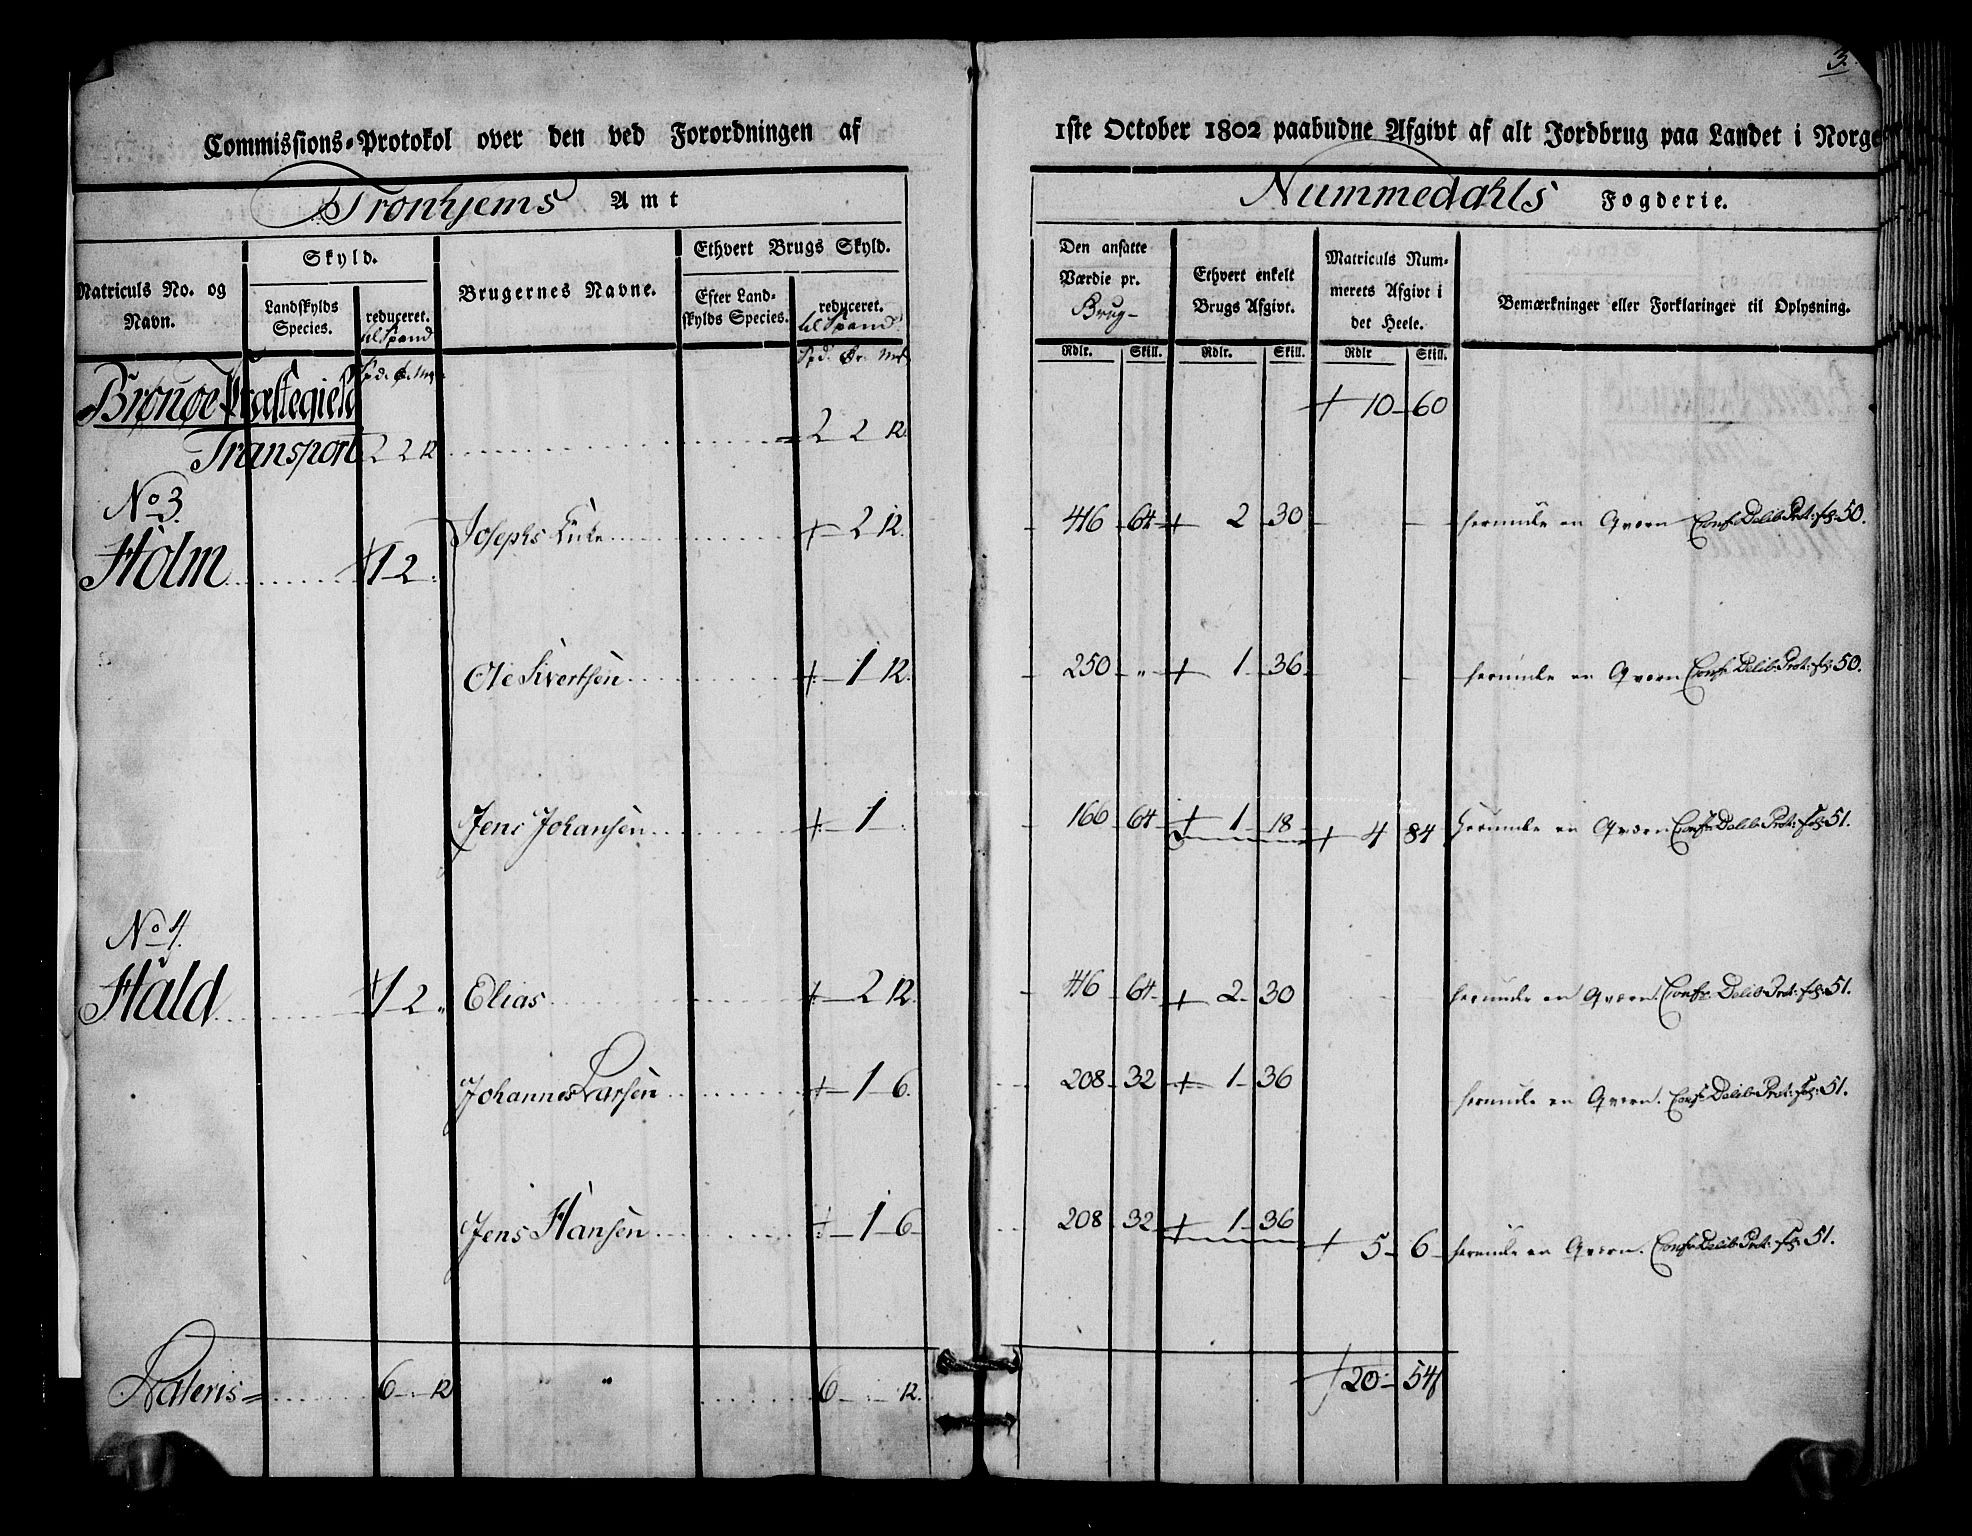 3.
Commissions-Protokol over den ved Forordningen af 1ste October 1802 paabudne Afgivt af alt Jordbrug paa Landet i Norge
Tronhjems Amt Nummedahls Fogderie.
Matriculs No. og Navn.
Skyld.
Landskylds Species.
reduceret. til Spand
Brugernes Navne.
Ethvert Brugs Skyld.
Efter Landskylds Species.
reduceret. til Spand
Den ansatte Værdie pr. Brug
Ethvert enkelt Brugs Afgivt.
Matriculs Nummerets Afgivt i det Heele.
Bemærkninger eller Forklaringer til Oplysning.
Spd. Ør. Mk. Spd. Ør. Mk. Rdlr. Skill. Rdlr. Skill. Rdlr Skill.
Brönöe Præstegield
Transport 2 2 12 2 2 12. 10 60
No 3.
Holm 1 2 Josephs Enke 2 12. 416 64 2 30 herunder en Qværn Confr Delib. Prot: fol: 50.
Ole Sivertsen 1 12. 250 „ 1 36 herunder en Qværn Confr Delib. Prot: fol: 50.
Jens Johansen 1 166 64 1 18 4 84 herunder en Qværn Confr Delib. Prot: fol: 51.
No 4.
Hald 1 2 „ Elias 2 12. 416 64 2 30 herunder en Qværn. Confr Delib. Prot: fol: 51.
Johannes Larsen 1 6. 208 32 1 36 herunder en Qværn. Confr Delib. Prot: fol: 51.
Jens Hansen 1 6 208 32 1 36 5 6 herunder en Qværn. Confr Delib. Prot: fol: 51.
Lateris 6 12 „ 6 12. 20 54